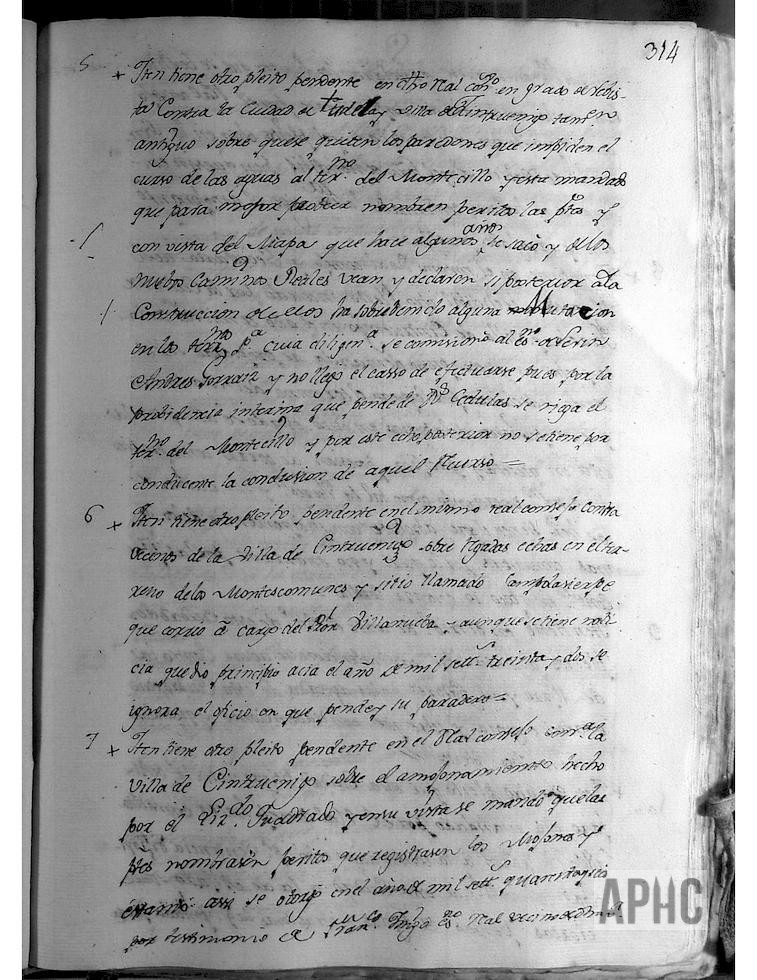 314
5 + Iten tiene otro pleito pendente en dho real con.º en grado de rebis-
ta Contra la Ciudad de Tudela y villa de Cintruenigo tanvn
antiguo sobre quese quiten los paredones que impiden el
curso de las aguas al ter.no del Montecillo y esta mandado
que para mejor probeer nombren peritos las ptes y
con vista del Mapa que hace algunos años se sacó y de los
nuebos Caminos Reales vean y declaren si posterior a la
Construccion de ellos ha sobrebenido alguna Mutacion
en los ter.nos p.a cuia diligen.a se comisionó al es.no de Perin
Andres Gorraiz y no llegó el casso de efectuarse pues por la
probidencia interina que pende de R.s Cedulas se rigia el
ter.no del Montecillo y por este echo posterior no se tiene por
conducente la conclusion de aquel Recurso =
6 + Iten tiene otro pleito pendente en el mismo real consejo contra
vecinos de la Villa de Cintruenigo sobre ligados echas en el ter-
reno de los Montes comunes y sitio llamado
que corrio a cargo del Ror Villanueba y aunque se tiene noti
cia que dio principio acia el año de mil sett.s treinta y dos se
ignora el oficio en que pende y su paradero =
7 + Iten tiene otro pleito pendente en el Real consejo contra la
villa de Cintruenigo sobre el amojonamiento hecho
por el Liz.do Quadrado y en su vista se mandó que las
ptes nombrasen peritos que registrasen los Mojones y
assi se otorgó en el año de mil sett.s quarenta y seis
por testimonio de Fran.co Iñigo es.no Real vecino de
APHC